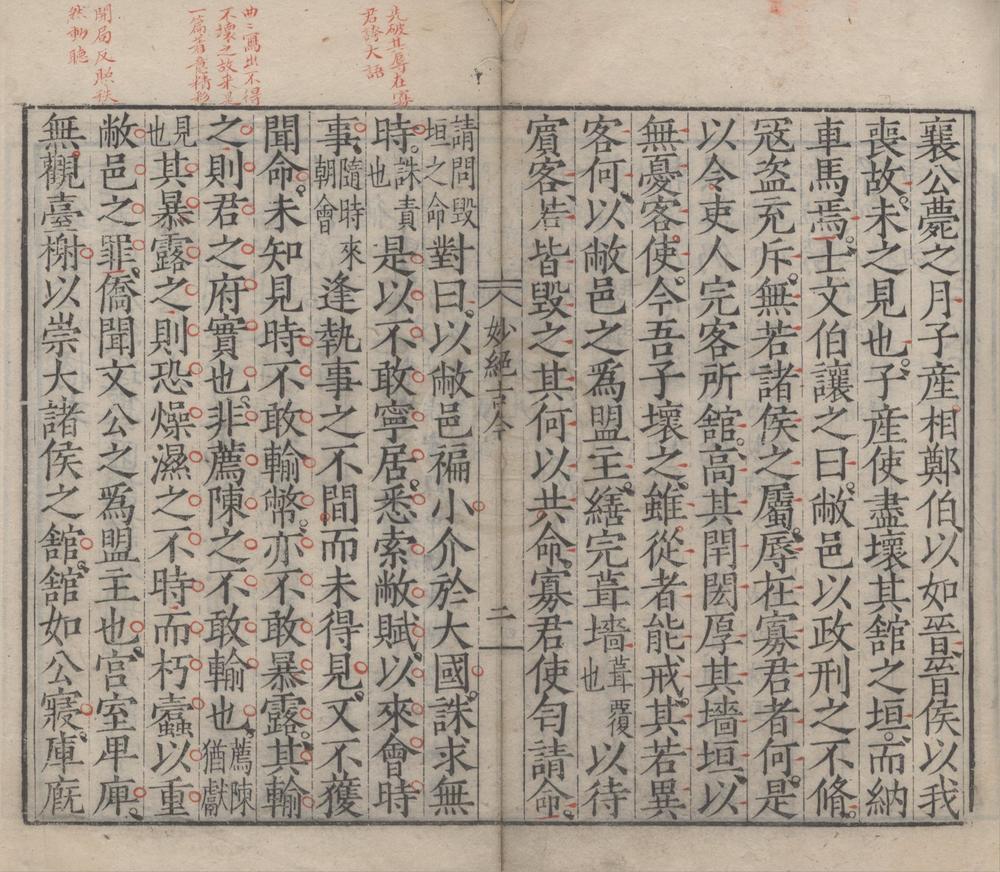 先破其辱在寡
君誇大語
曲〻寫出不得
不壞之故来是
一篇著意精彩
開局反照秩
然動聽
襄公薨之月子産相鄭伯以如晉晉侯以我
喪故未之見也子産使盡壞其舘之垣而納
車馬焉士文伯讓之曰敝邑以政刑之不脩
冦盗充斥無若諸侯之屬辱在寡君者何是
以令吏人完客所舘高其閈閎厚其墻垣以
無憂客使今吾子壞之雖從者能戒其若異
客何以敝邑之爲盟主繕完葺墻葺覆也以待
賔客若皆毀之其何以共命寡君使匄請命
妙絶古今 二
請問毀垣之命對曰以敝邑褊小介於大國誅求無
時誅責也是以不敢寧居悉索敝賦以來會時
事隨時來朝會逢執事之不間而未得見又不獲
聞命未知見時不敢輸幣亦不敢暴露其輸
之則君之府實也非薦陳之不敢輸也薦陳猶獻
見也其暴露之則恐燥濕之不時而朽蠧以重
敝邑之罪僑聞文公之爲盟主也宮室卑庳
無觀臺榭以崇大諸侯之舘舘如公寢庫厩